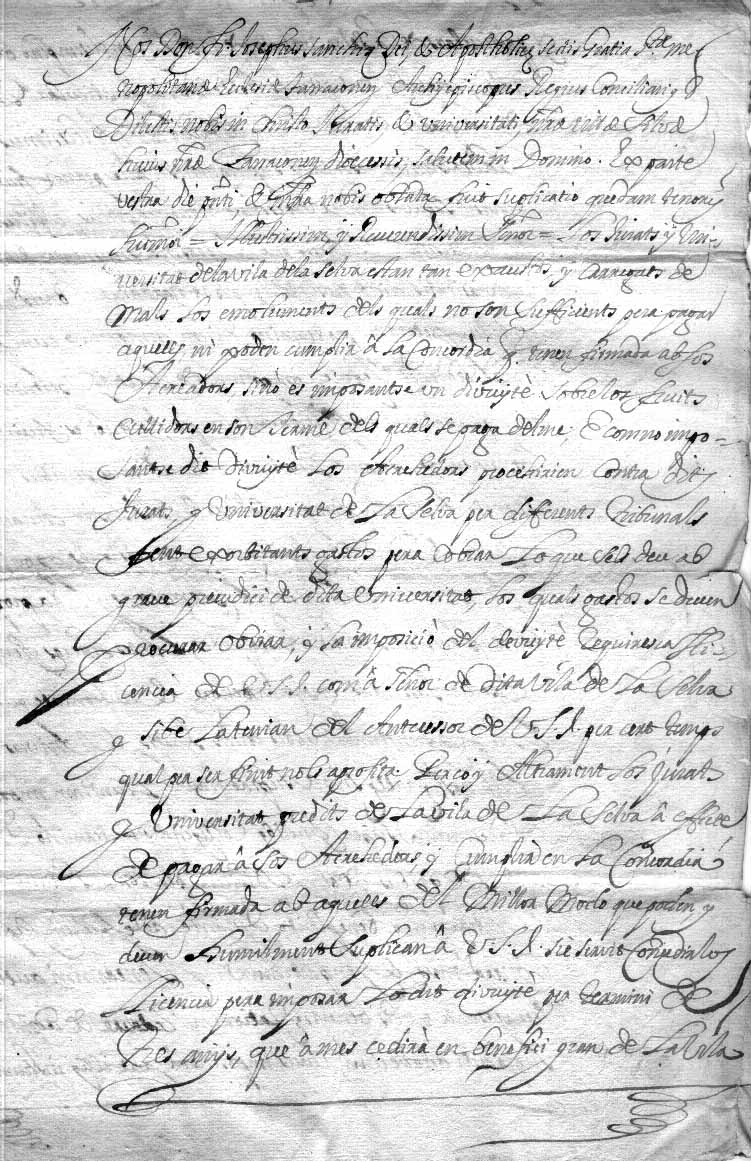 Nos Don fr. Josephus sanchiz Dei, & Apostholicæ sedis Gratia stæ me
tropolitanæ Ecclesiæ tarraconen Archiepiscopus Regius Consiliarius &
Dilectis nobis in Christo Juratis, & Universitati, Villæ Silvæ
huius nræ Tarraconen diocesis, salutem in Domino. Ex parte
vestra die pnti, & infra nobis oblata fuit suplicatio quedam tenoris
= Illustrissim, y Reverendissim Señor = Los Jurats y Uni=
versitat de la vila de la selva estan tan exaustos, y carregats de
mals los emoluments dels quals no son sufficients pera pagar
aquells ni poden cumplir â la Concordia q tenen firmada ab los
Acreadors, sinò es imposantse un divuytè sobre los fruits
Cullidors en son terme dels quals se paga delme, E com no impo=
santse dit divuytè los Acrehedors procehirien contra dits
Jurats y Universitat de La Selva per differents tribunals
fent exorbitants gastos pera cobrar lo que sels deu ab
grave prejudici de dita Universitat, los quals gastos se deuen
procurar obviar, y la imposiciò del devuytè requiresca lli=
cencia de V. S. I. com â Señor de dita vila de La Selva
y sibe la tenian del Antecessor de V. S. I. per cert temps
qual per ser finit nols aprofita. Perço y Altrament los Jurats
y Universitat predits de La vila de La Selva â effecte
de pagar â los Acrehedors, y cumplir en la Concordia
tenen firmada ab aquells del Millor Modo que poden y
deuen humilment suplican â V. S. I. sie servit Concedirlos
Llicencia pera imposar lo dit divuytè per termini de
Tres anys, que â mes cedirà en benefici gran de La Vila